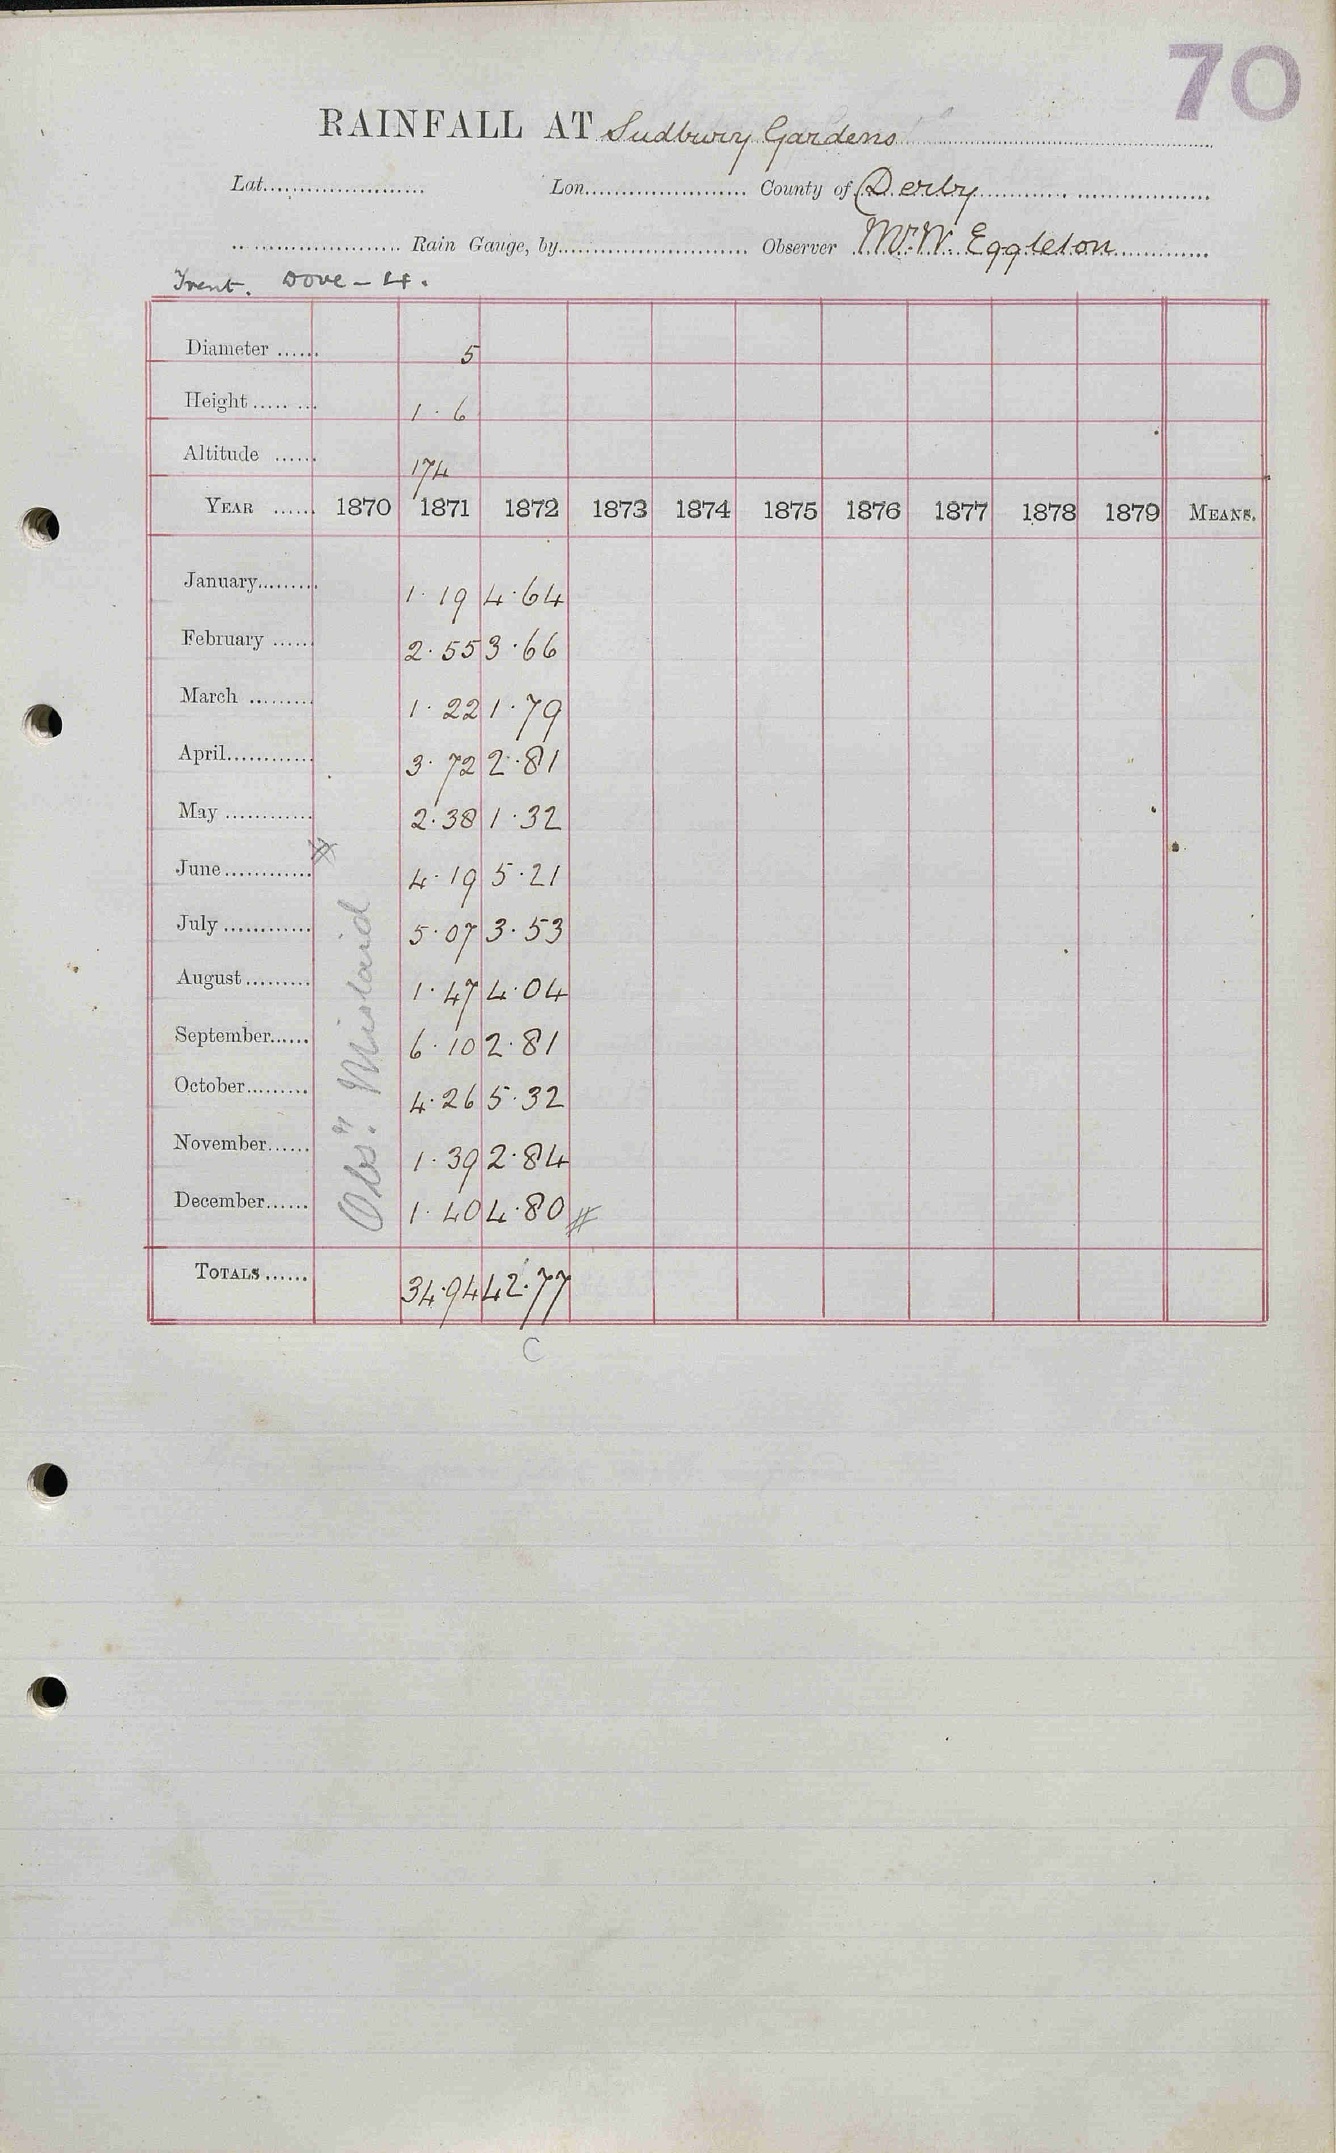 70
RAINFALL AT Sudbury Gardens
Lat. Lon. County of Derby
Rain Gauge, by Observer Mr. W. Eggleton
Trent. Dove – 4.
Diameter 5
Height 1 · 6
Altitude 174
YEAR 1870 1871 1872 1873 1874 1875 1876 1877 1878 1879 MEANS.
January 1·19 4·64
February 2·55 3·66
March 1·22 1·79
April 3·72 2·81
May 2·38 1·32
June 4·19 5·21
July 5·07 3·53
August 1·47 4·04
September 6·10 2·81
October 4·26 5·32
November 1·39 2·84
December 1·40 4·80 #
TOTALS 34·94 42·77
C
Obsn. Mislaid